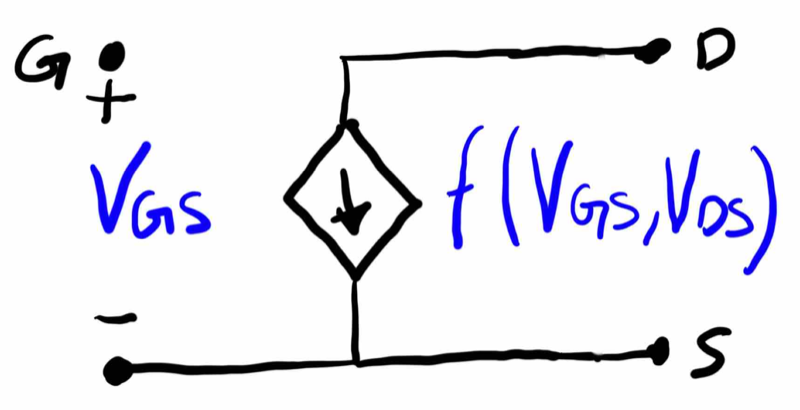 G D
+
VGS f(VGS,VDS)
-
S